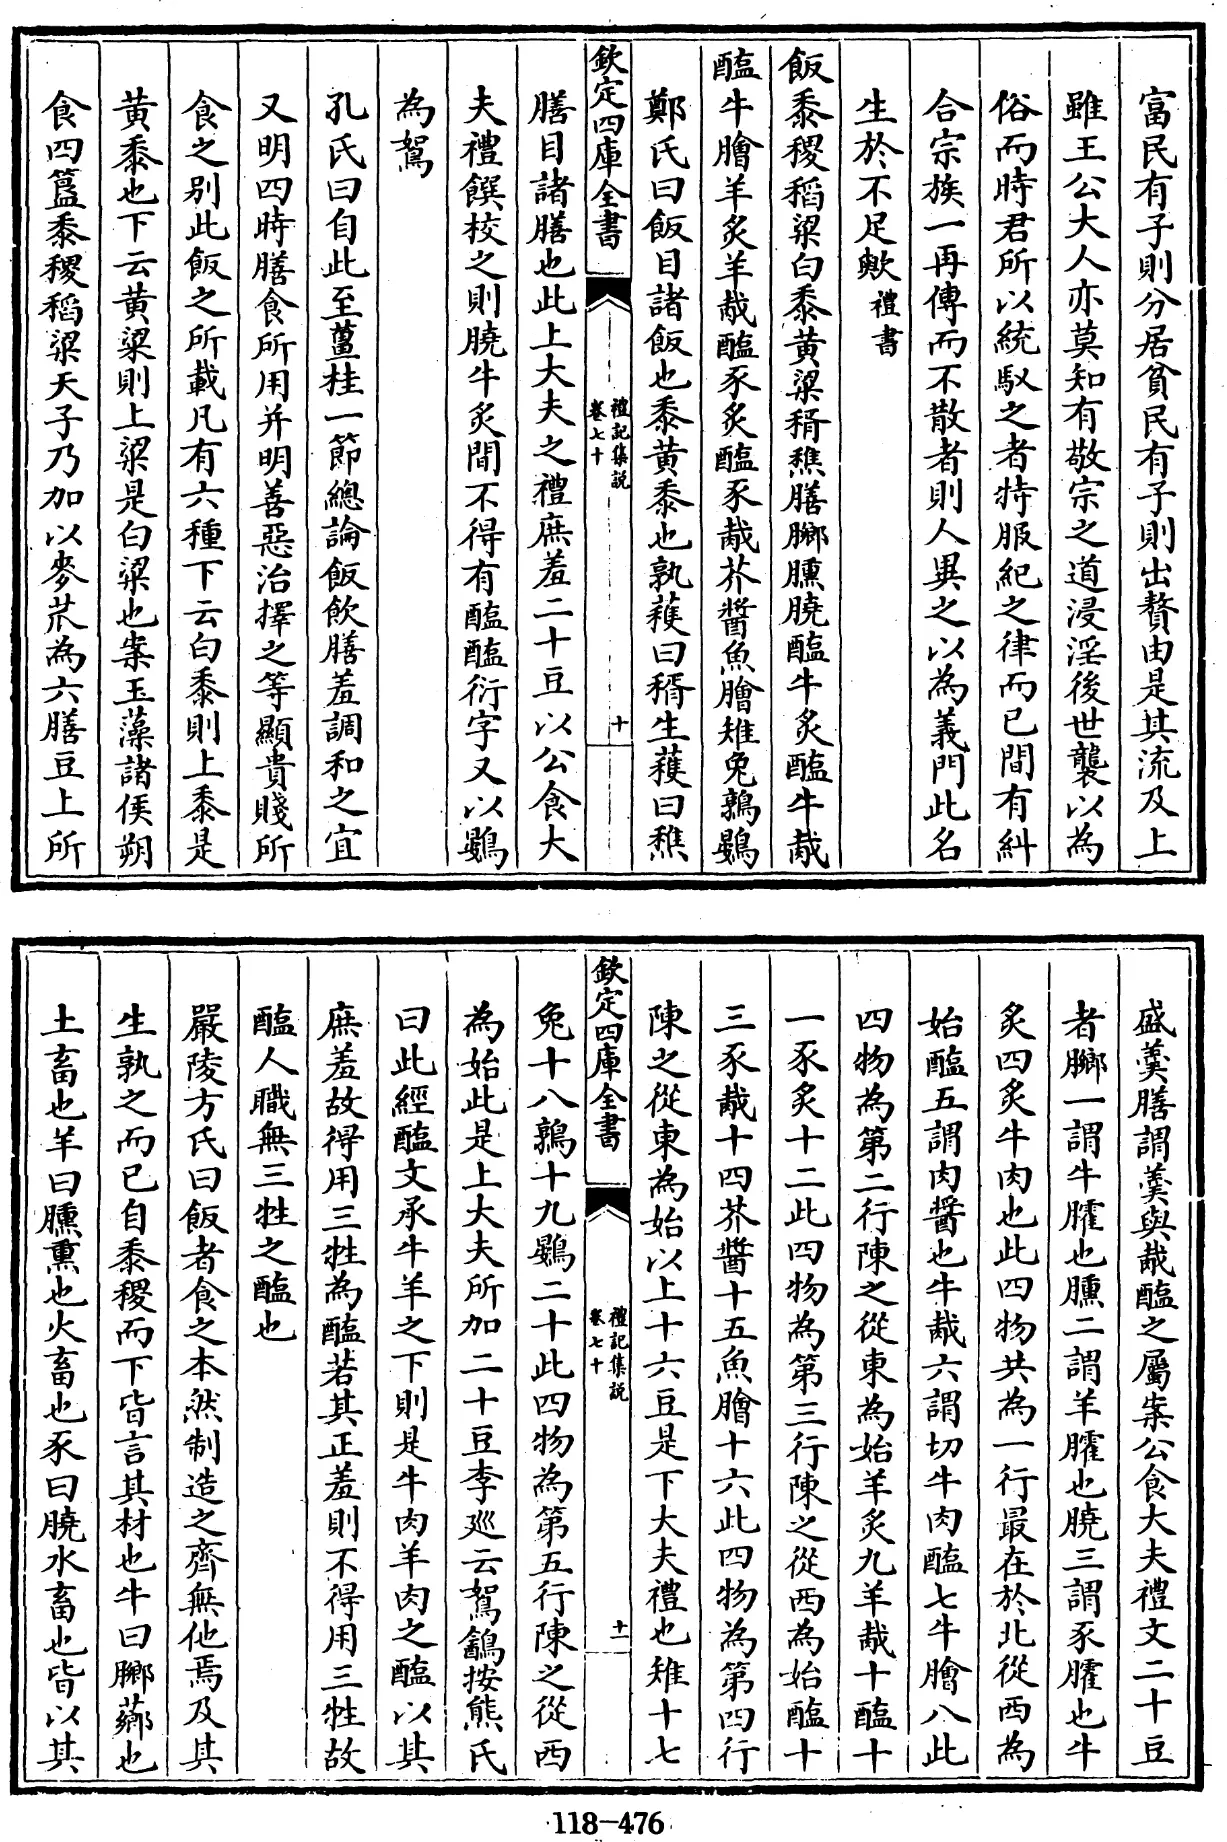 富民有子則分居貧民有子則出贅由是其流及上
雖王公大人亦莫知有敬宗之道浸淫後世襲以為
俗而時君所以統馭之者特服紀之律而已間有糾
合宗族一再傳而不散者則人異之以為義門此名
生於不足歟禮書
飯黍稷稻粱白黍黃粱稰穛膳膷臐膮醢牛炙醢牛胾
醢牛膾羊炙羊胾醢豕炙醢豕胾芥醬魚膾雉兔鶉鷃
鄭氏曰飯目諸飯也黍黃黍也孰穫曰稰生穫曰穛
欽定四庫全書
禮記集說
卷七十
十
膳目諸膳也此上大夫之禮庶羞二十豆以公食大
夫禮饌校之則膮牛炙間不得有醢醢衍字又以鷃
為鴽
孔氏曰自此至薑桂一節總論飯飲膳羞調和之宜
又明四時膳食所用并明善惡治擇之等顯貴賤所
食之別此飯之所載凡有六種下云白黍則上黍是
黃黍也下云黃粱則上粱是白粱也案玉藻諸侯朔
食四簋黍稷稻粱天子乃加以麥苽為六膳豆上所
盛羹膳謂羹與胾醢之屬案公食大夫禮文二十豆
者膷一謂牛臛也臐二謂羊臛也膮三謂豕臛也牛
炙四炙牛肉也此四物共為一行最在於北從西為
始醢五謂肉醬也牛胾六謂切牛肉醢七牛膾八此
四物為第二行陳之從東為始羊炙九羊胾十醢十
一豕炙十二此四物為第三行陳之從西為始醢十
三豕胾十四芥醬十五魚膾十六此四物為第四行
陳之從東為始以上十六豆是下大夫禮也雉十七
欽定四庫全書
禮記集說
卷七十
十一
兔十八鶉十九鷃二十此四物為第五行陳之從西
為始此是上大夫所加二十豆李巡云鴽鷂按熊氏
曰此經醢文承牛羊之下則是牛肉羊肉之醢以其
庶羞故得用三牲為醢若其正羞則不得用三牲故
醢人職無三牲之醢也
嚴陵方氏曰飯者食之本然制造之齊無他焉及其
生孰之而已自黍稷而下皆言其材也牛曰膷薌也
土畜也羊曰臐熏也火畜也豕曰膮水畜也皆以其
118-476